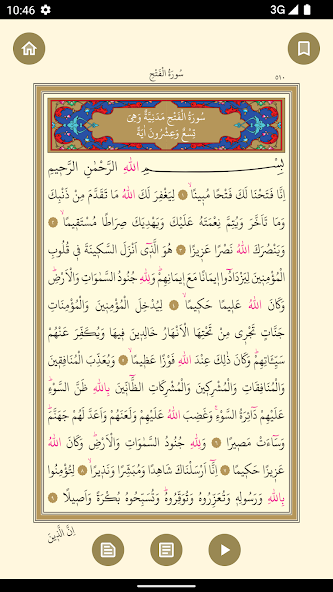 10:46
3G
سُورَةُ الْفَتْحِ
٥١٠
سُورَةُ الْفَتْحِ مَدَنِيَّةٌ وَهِىَ
تِسْعٌ وَعِشْرُونَ اٰيَةً
بِسْمِ اللّٰهِ الرَّحْمٰنِ الرَّحِيمِ
اِنَّا فَتَحْنَا لَكَ فَتْحًا مُبِينًاۙ ١ لِيَغْفِرَ لَكَ اللّٰهُ مَا تَقَدَّمَ مِنْ ذَنْبِكَ
وَمَا تَاَخَّرَ وَيُتِمَّ نِعْمَتَهُ عَلَيْكَ وَيَهْدِيَكَ صِرَاطًا مُسْتَقِيمًاۙ ٢
وَيَنْصُرَكَ اللّٰهُ نَصْرًا عَزِيزًا ٣ هُوَ الَّذٖٓى اَنْزَلَ السَّكِينَةَ فٖى قُلُوبِ
الْمُؤْمِنٖينَ لِيَزْدَادُٓوا اٖيمَانًا مَعَ اٖيمَانِهِمْۜ وَلِلّٰهِ جُنُودُ السَّمٰوَاتِ وَالْاَرْضِۜ
وَكَانَ اللّٰهُ عَلٖيمًا حَكٖيمًاۙ ٤ لِيُدْخِلَ الْمُؤْمِنٖينَ وَالْمُؤْمِنَاتِ
جَنَّاتٍ تَجْرٖى مِنْ تَحْتِهَا الْاَنْهَارُ خَالِدٖينَ فٖيهَا وَيُكَفِّرَ عَنْهُمْ
سَيِّـَٔاتِهِمْۜ وَكَانَ ذٰلِكَ عِنْدَ اللّٰهِ فَوْزًا عَظٖيمًاۙ ٥ وَيُعَذِّبَ الْمُنَافِقٖينَ
وَالْمُنَافِقَاتِ وَالْمُشْرِكٖينَ وَالْمُشْرِكَاتِ الظَّٓانّٖينَ بِاللّٰهِ ظَنَّ السَّوْءِۜ
عَلَيْهِمْ دَٓائِرَةُ السَّوْءِۚ وَغَضِبَ اللّٰهُ عَلَيْهِمْ وَلَعَنَهُمْ وَاَعَدَّ لَهُمْ جَهَنَّمَۜ
وَسَٓاءَتْ مَصٖيرًا ٦ وَلِلّٰهِ جُنُودُ السَّمٰوَاتِ وَالْاَرْضِۜ وَكَانَ اللّٰهُ
عَزٖيزًا حَكٖيمًا ٧ اِنَّٓا اَرْسَلْنَاكَ شَاهِدًا وَمُبَشِّرًا وَنَذٖيرًاۙ ٨ لِتُؤْمِنُوا
بِاللّٰهِ وَرَسُولِهٖ وَتُعَزِّرُوهُ وَتُوَقِّرُوهُۜ وَتُسَبِّحُوهُ بُكْرَةً وَاَصٖيلًا ٩
اِنَّ الَّذٖينَ